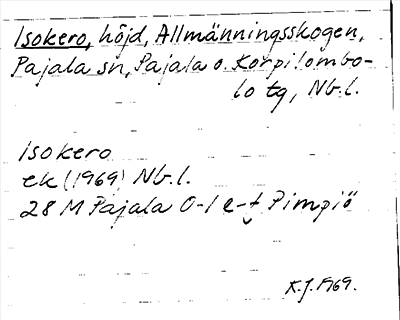 Isokero, höjd, Allmänningsskogen,
Pajala sn, Pajala o. Korpilombo-
lo tg, Nb.l.
Isokero
ek (1969) Nb.l.
28 M Pajala 0-1 e-f Pimpiö
K.J. 1969.